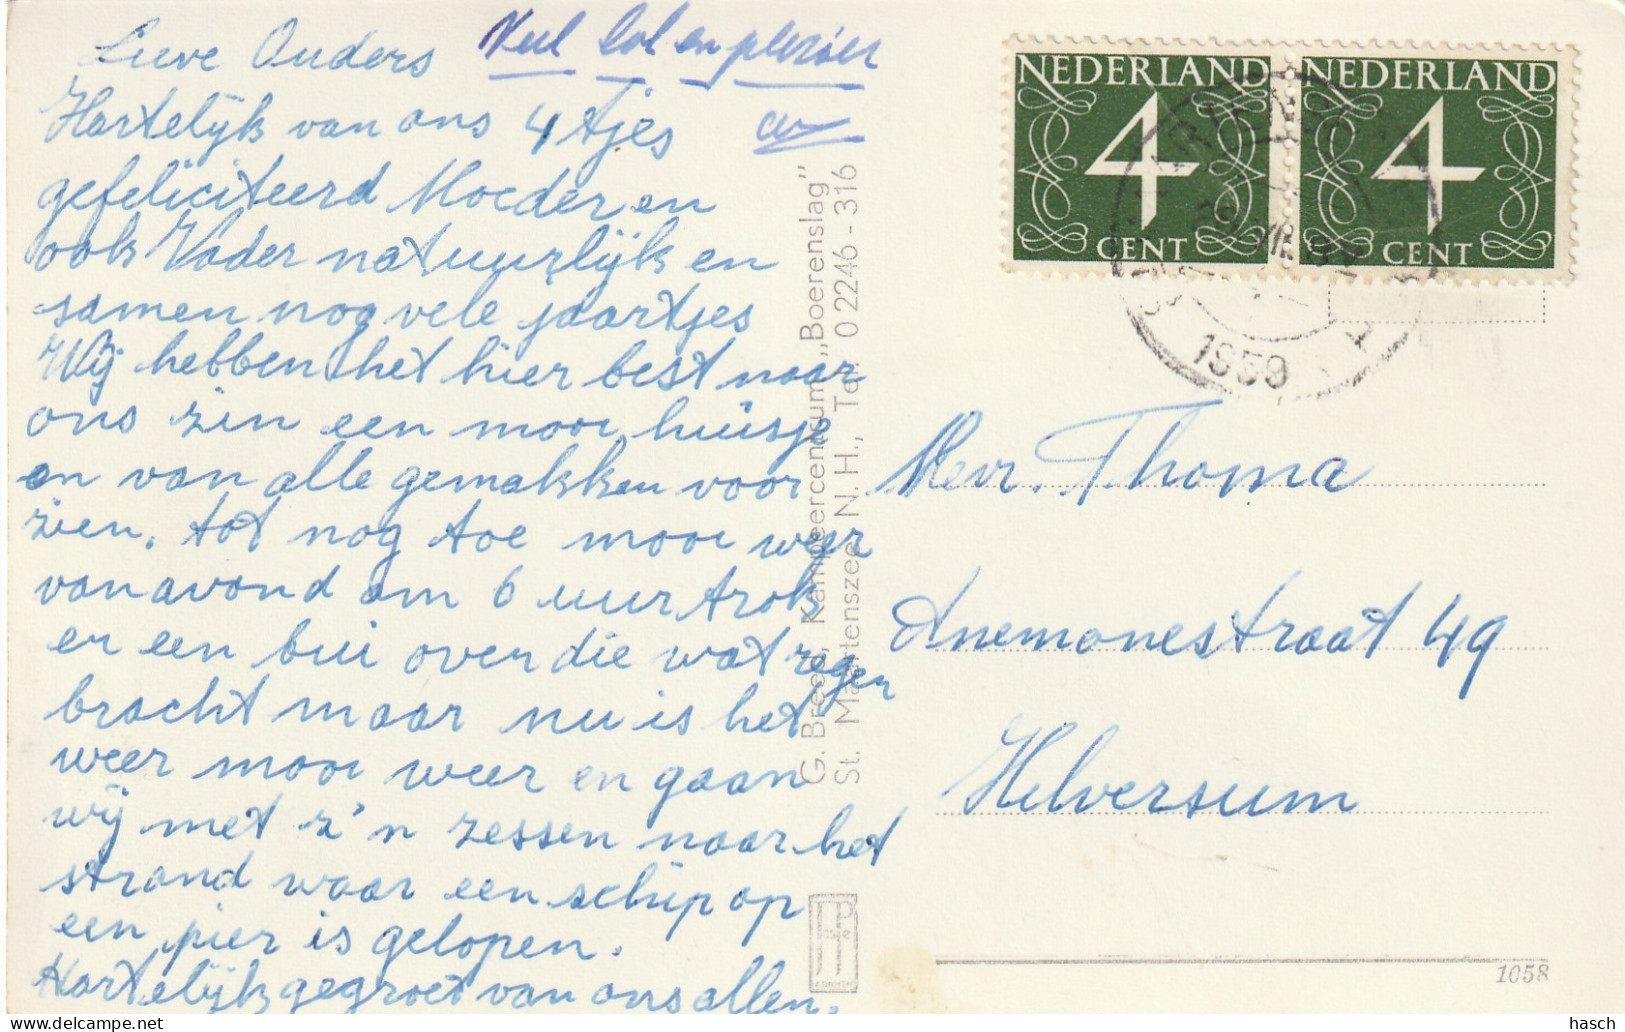 Lieve Ouders
Veel lol en plezier
Hartelijk van ons 4 tjes
gefeliciteerd Moeder en
ook Vader natuurlijk en
samen nog vele jaartjes
Wij hebben het hier best naar
ons zin een mooi huisje
en van alle gemakken voor
zien. tot nog toe mooi weer
vanavond om 6 uur trok
er een bui over die wat regen
bracht maar nu is het
weer mooi weer en gaan
wij met z'n zessen naar het
strand waar een schip op
een pier is gelopen.
Hartelijk gegroet van ons allen.
G. Breed, Kampeercentrum „Boerenslag"
St. Maartenszee N.H., Tel. 02246-316
NEDERLAND
4
CENT
NEDERLAND
4
CENT
1959
Mevr. Thoma
Anemonestraat 49
Hilversum
1058
hasch
delcampe.net